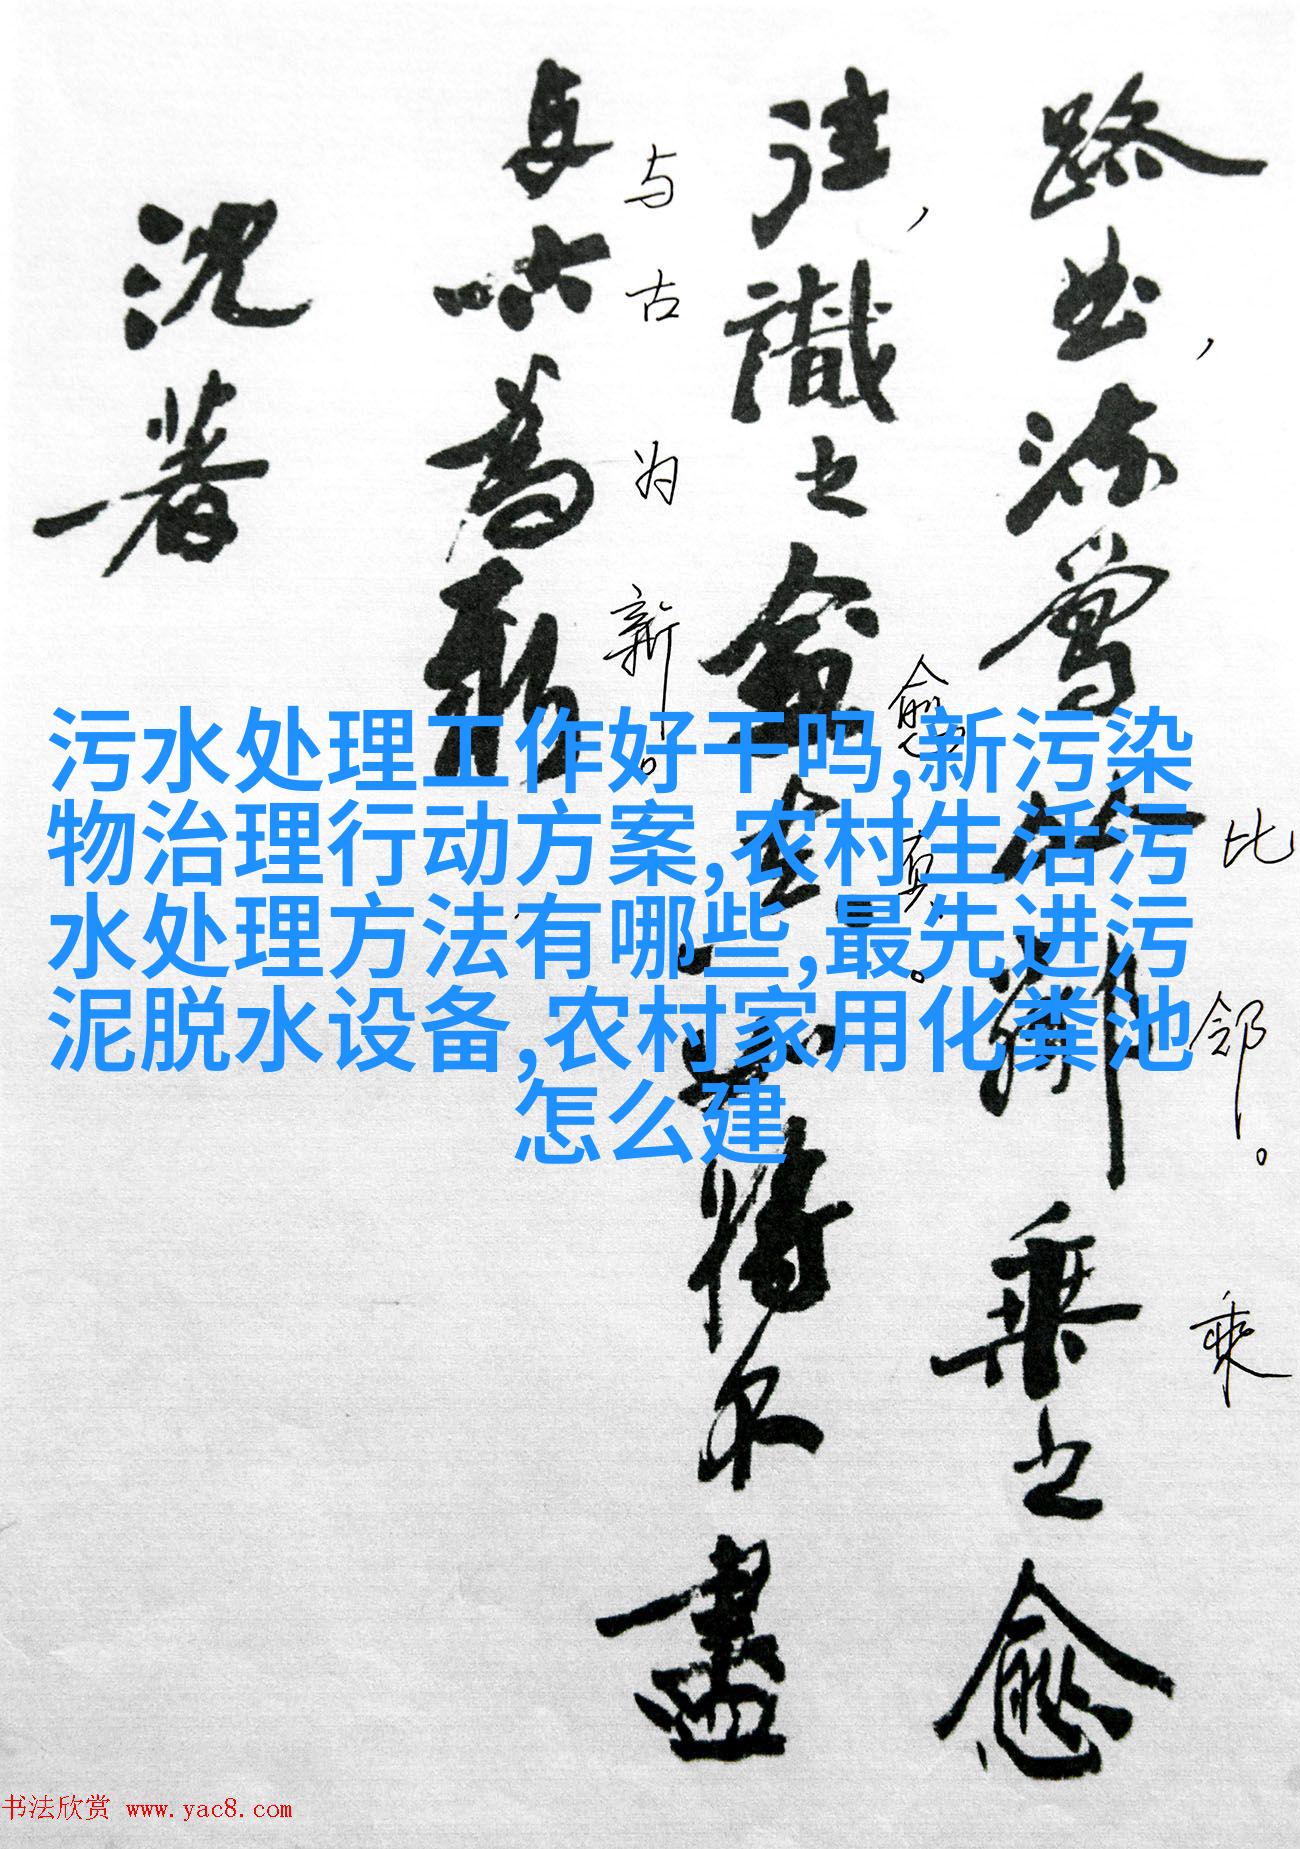 路曲,流莺比邻。乘之愈
往,識之愈真。如将不盡
与古為新
沈著
与古为新。
愈真。
比邻。
乘
污水处理工作好干吗,新污染
物治理行动方案,农村生活污
水处理方法有哪些,最先进污
泥脱水设备,农村家用化粪池
怎么建
书法欣赏 www.yac8.com